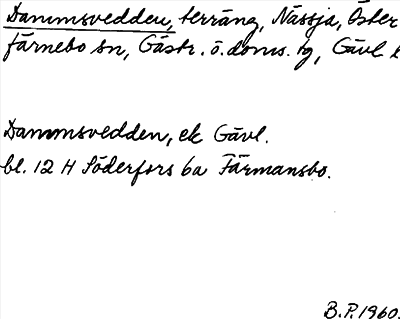 Dammsvedden, terräng, Nässja, Öster
färnebo sn, Gästr. ö. doms. tg, Gävl
Dammsvedden, ek Gävl.
bl. 12 H Söderfors 6a Färmansbo.
B.P. 1960.